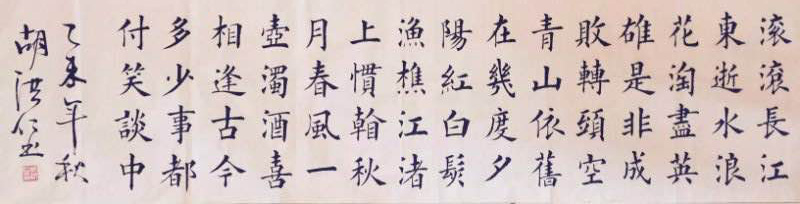 滚滾長江
東逝水浪
花淘盡英
雄是非成
敗轉頭空
青山依舊
在幾度夕
陽紅白髮
漁樵江渚
上慣翰秋
月春風一
壺濁酒喜
相逢古今
多少事都
付笑談中
乙未年秋
胡洪